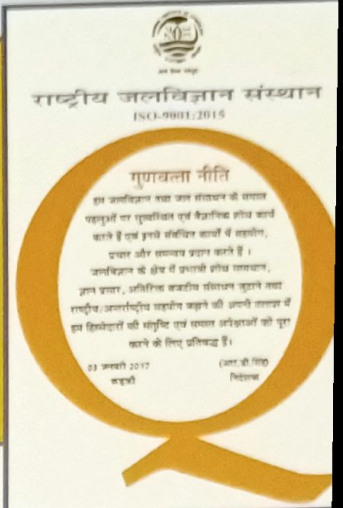 राष्ट्रीय जलविज्ञान संस्थान
ISO-9001:2015
गुणवत्ता नीति
हम जलविज्ञान तथा जल संसाधन के समस्त
पहलुओं पर सुव्यवस्थित एवं वैज्ञानिक शोध कार्य
करते हैं एवं इनसे संबंधित कार्यों में सहयोग,
प्रचार और समन्वय प्रदान करते हैं ।
जलविज्ञान के क्षेत्र में प्रभावी शोध समाधान,
ज्ञान प्रसार, अतिरिक्त बजटीय संसाधन जुटाने तथा
राष्ट्रीय/अन्तर्राष्ट्रीय सहयोग बढ़ाने की अपनी तत्परता में
हम हितधारकों की संतुष्टि एवं समस्त अपेक्षाओं को पूरा
करने के लिए प्रतिबद्ध हैं।
03 जनवरी 2017
रूड़की
(आर.डी.सिंह)
निदेशक